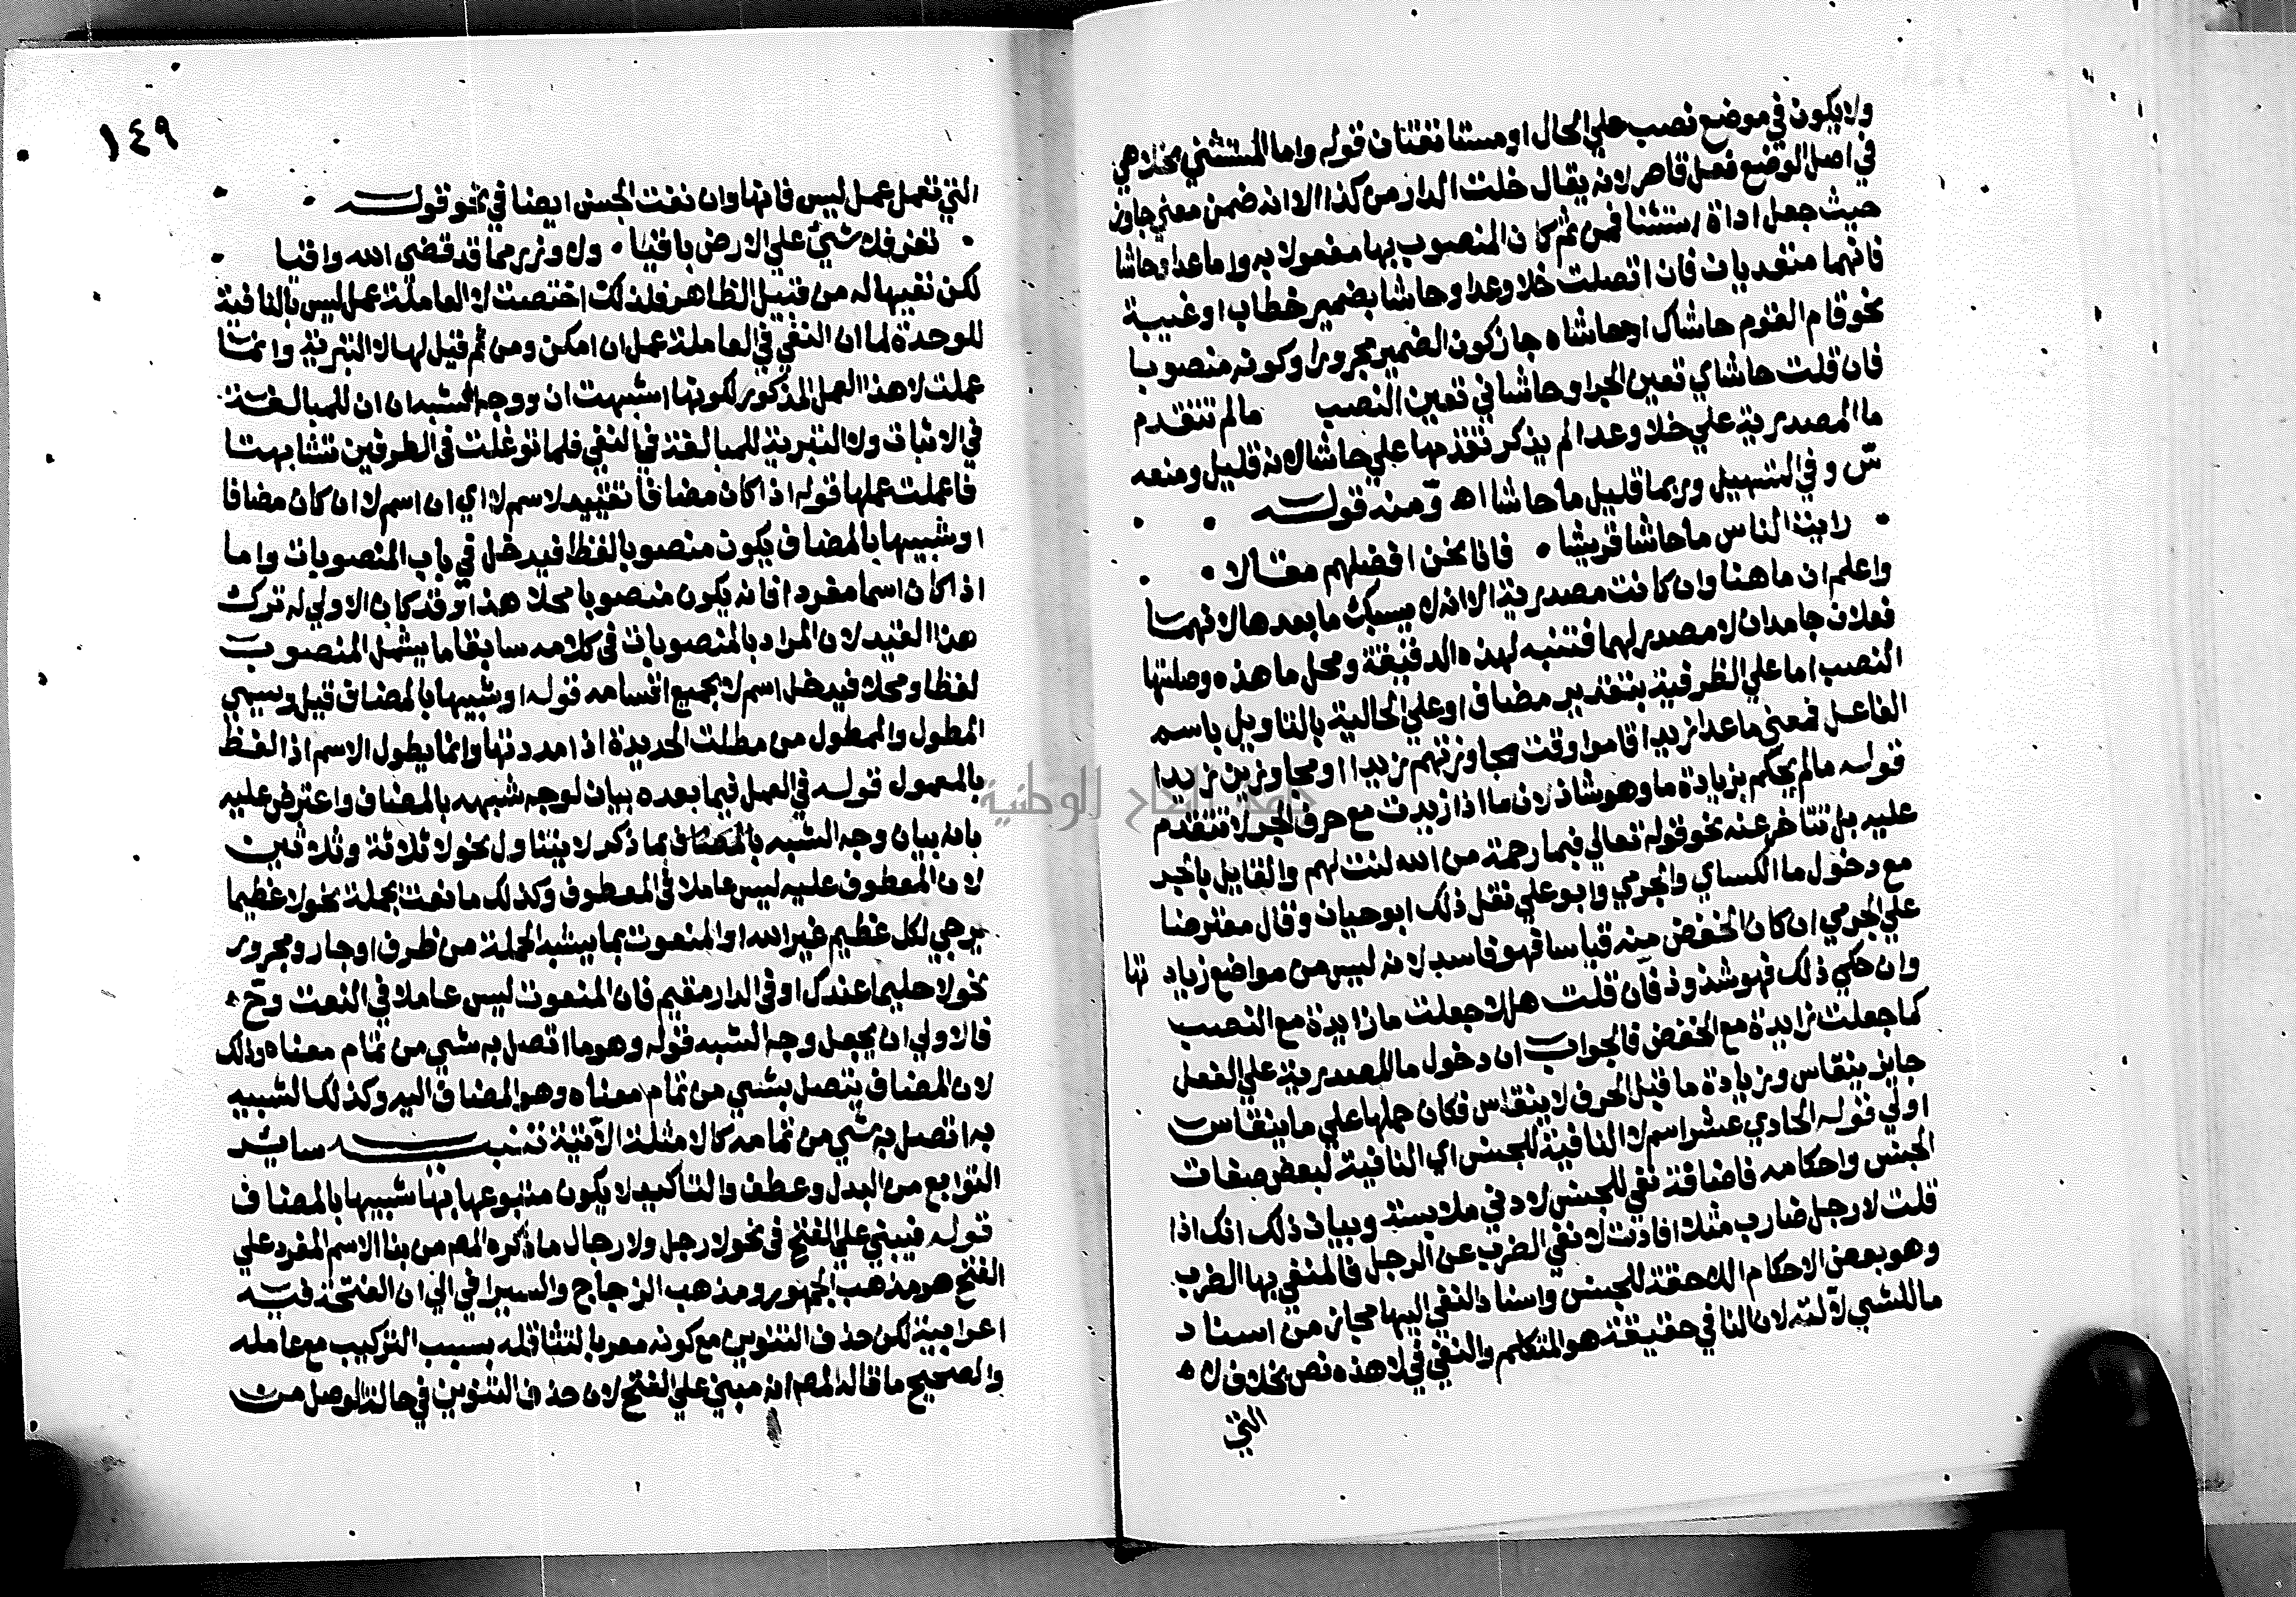 ولا يكون في موضع نصب علي الحال او مستانفتان قوله واما المستثني بخلا هي
في اصل الوضع فعل قاصر لانه يقال خلت الدار من كذا الا انه ضمن معني جاوز
حيث جعل اداة استثنا فمن ثم كان المنصوب بها مفعولا به واما عدا وحاشا
فانهما متعديان فان اتصلت خلا وعدا وحاشا بضمير خطاب او غيبة
نحو قام القوم حاشاك او حاشاه جاز كون الضمير مجرورا وكونه منصوبا
فان قلت حاشاي تعين الجر او حاشاني تعين النصب مالم تتقدم
ما المصدرية علي خلا وعدا لم يذكر تقدمها علي حاشا لانه قليل ومنعه
س وفي التسهيل وربما قليل ما حاشا اه ومنه قوله
رايت الناس ما حاشا قريشا فانا نحن افضلهم مقالا
واعلم ان ما هنا وان كانت مصدرية الا انه لا يسبك ما بعدها لانهما
فعلان جامدان لا مصدر لهما فتنبه لهذه الدقيقة ومحل ما هذه وصلتها
النصب اما علي الظرفية بتقدير مضاف او علي الحالية بالتاويل باسم
الفاعل فمعني ما عدا زيدا قاموا وقت مجاوزتهم زيدا او مجاوزين زيدا
قوله مالم يحكم بزيادة ما وهو شاذ لان ما اذا زيدت مع حرف الجر لا تتقدم
عليه بل تتاخر عنه نحو قوله تعالي فبما رحمة من الله لنت لهم والقايل بالجر
مع دخول ما الكساي والجرمي وابو علي نقل ذلك ابو حيان وقال معترضا
علي الجرمي ان كان الخفض منه قياسا فهو فاسد لانه ليس من مواضع زيادتها
وان حكي ذلك فهو شذوذ فان قلت هلا جعلت ما زايدة مع النصب
كما جعلت زايدة مع الخفض فالجواب ان دخول ما المصدرية علي الفعل
جايز ينقاس وزيادة ما قبل الحرف لا ينقاس فكان حملها علي ما ينقاس
اولي قوله الحادي عشر اسم لا النافية للجنس اي النافية لبعض صفات
الجنس واحكامه فاضافة نفي للجنس لادني ملابسة وبيان ذلك انك اذا
قلت لا رجل ضارب مثلا افادت لا نفي الضرب عن الرجل فالمنفي بها الضرب
وهو بعض الاحكام اللاحقة للجنس واسناد النفي اليها مجاز من اسناد
ما للشي لآلته لان النافي حقيقة هو المتكلم والنفي في لا هذه نص بخلاف لا
التي
١٤٩
التي تعمل عمل ليس فانها وان نفت الجنس ايضا في نحو قوله
تعز فلا شي علي الارض باقيا ولا وزر مما قد قضي الله واقيا
لكن نفيها له من قبيل الظاهر فلذلك اختصت لا العاملة عمل ليس بالنافية
للوحدة لما ان النفي في العاملة عمل ان امكن ومن ثم قيل لها لا التبرية وانما
عملت لا هذا العمل المذكور لكونها اشبهت ان ووجه الشبه ان ان للمبالغة
في الاثبات ولا التبرية للمبالغة في النفي فلما توغلت في الطرفين تشابهتا
فاعملت عملها قوله اذا كان مضافا تقييد لاسم لا اي ان اسم لا ان كان مضافا
او شبيها بالمضاف يكون منصوبا لفظا فيدخل في باب المنصوبات واما
اذا كان اسما مفردا فانه يكون منصوبا محلا هذا وقد كان الاولي له ترك
هذا القيد لان المراد بالمنصوبات في كلامه سابقا ما يشمل المنصوب
لفظا ومحلا فيدخل اسم لا بجميع اقسامه قوله او شبيها بالمضاف قيل ويسمي
المطول والممطول من مطلت الحديدة اذا مددتها وانما يطول الاسم اذا لفظ
بالمعمول قوله في العمل فيما بعده بيان لوجه شبهه بالمضاف واعترض عليه
بانه بيان وجه الشبه بالمضاف بما ذكر لا يتناول نحو لا ثلاثة وثلاثين
لان المعطوف عليه ليس عاملا في المعطوف وكذلك ما نعت بجملة نحو لا عظيما
يرجي لكل عظيم غير الله او المنعوت بما يشبه الجملة من ظرف او جار ومجرور
نحو لا حليما عندك او في الدار مقيم فان المنعوت ليس عاملا في النعت وح
فالاولي ان يجعل وجه الشبه قوله وهو ما اتصل به شي من تمام معناه وذلك
لان المضاف يتصل بشي من تمام معناه وهو المضاف اليه وكذلك الشبيه
به اتصل به شي من تمامه كالامثلة الآتية تنبيه ساير
التوابع من البدل وعطف والتاكيد لا يكون متبوعها بها شبيها بالمضاف
قوله فيبني علي الفتح في نحو لا رجل ولا رجال ما ذكره المص من بنا الاسم المفرد علي
الفتح هو مذهب الجمهور ومذهب الزجاج والسيرافي الي ان الفتحة فيه
اعرابية لكن حذف التنوين مع كونه معربا لتثاقله بسبب التركيب مع عامله
والصحيح ما قاله المص انه مبني علي الفتح لان حذف التنوين في حالة الوصل من
جامعة النجاح الوطنية